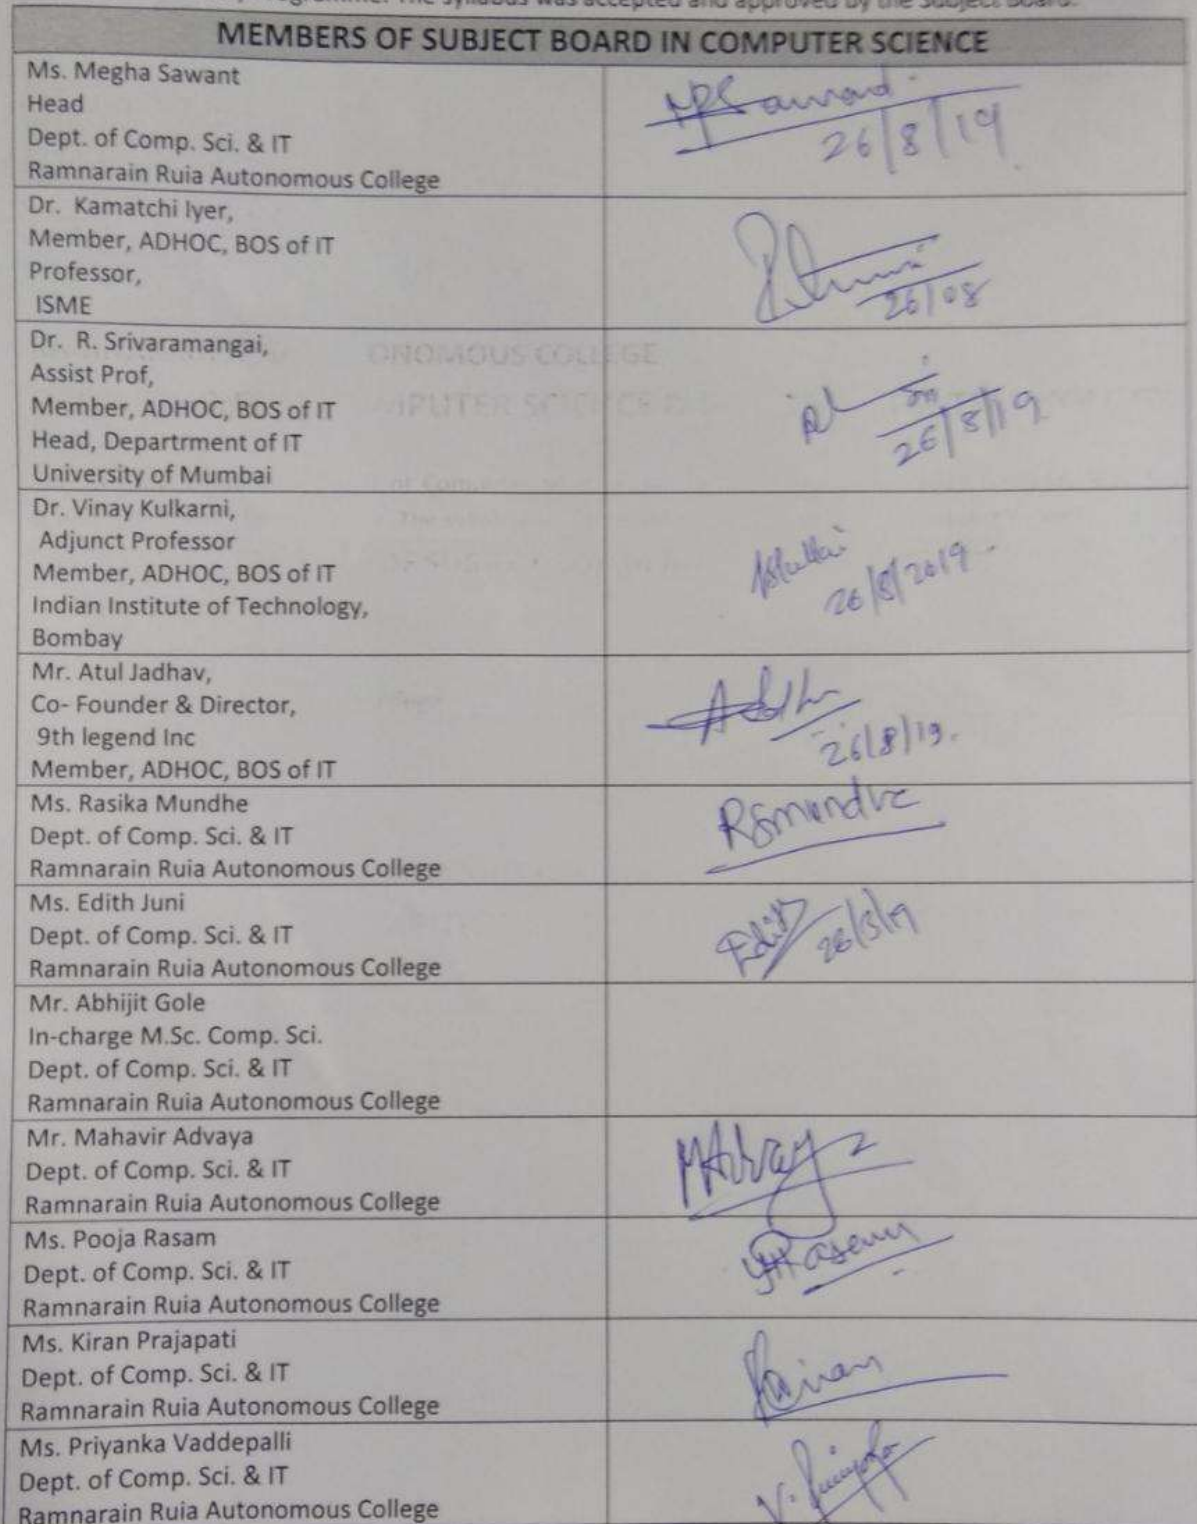 The syllabus was accepted and approved by the Subject Board.
MEMBERS OF SUBJECT BOARD IN COMPUTER SCIENCE
Ms. Megha Sawant
Head
Dept. of Comp. Sci. & IT
Ramnarain Ruia Autonomous College
26/8/19
Dr. Kamatchi Iyer,
Member, ADHOC, BOS of IT
Professor,
ISME
26/08
Dr. R. Srivaramangai,
Assist Prof,
Member, ADHOC, BOS of IT
Head, Departrment of IT
University of Mumbai
26/8/19
Dr. Vinay Kulkarni,
Adjunct Professor
Member, ADHOC, BOS of IT
Indian Institute of Technology,
Bombay
26/8/2019
Mr. Atul Jadhav,
Co- Founder & Director,
9th legend Inc
Member, ADHOC, BOS of IT
26/8/19.
Ms. Rasika Mundhe
Dept. of Comp. Sci. & IT
Ramnarain Ruia Autonomous College
RSmundhe
Ms. Edith Juni
Dept. of Comp. Sci. & IT
Ramnarain Ruia Autonomous College
Edith 26/8/19
Mr. Abhijit Gole
In-charge M.Sc. Comp. Sci.
Dept. of Comp. Sci. & IT
Ramnarain Ruia Autonomous College
Mr. Mahavir Advaya
Dept. of Comp. Sci. & IT
Ramnarain Ruia Autonomous College
Ms. Pooja Rasam
Dept. of Comp. Sci. & IT
Ramnarain Ruia Autonomous College
Ms. Kiran Prajapati
Dept. of Comp. Sci. & IT
Ramnarain Ruia Autonomous College
Ms. Priyanka Vaddepalli
Dept. of Comp. Sci. & IT
Ramnarain Ruia Autonomous College